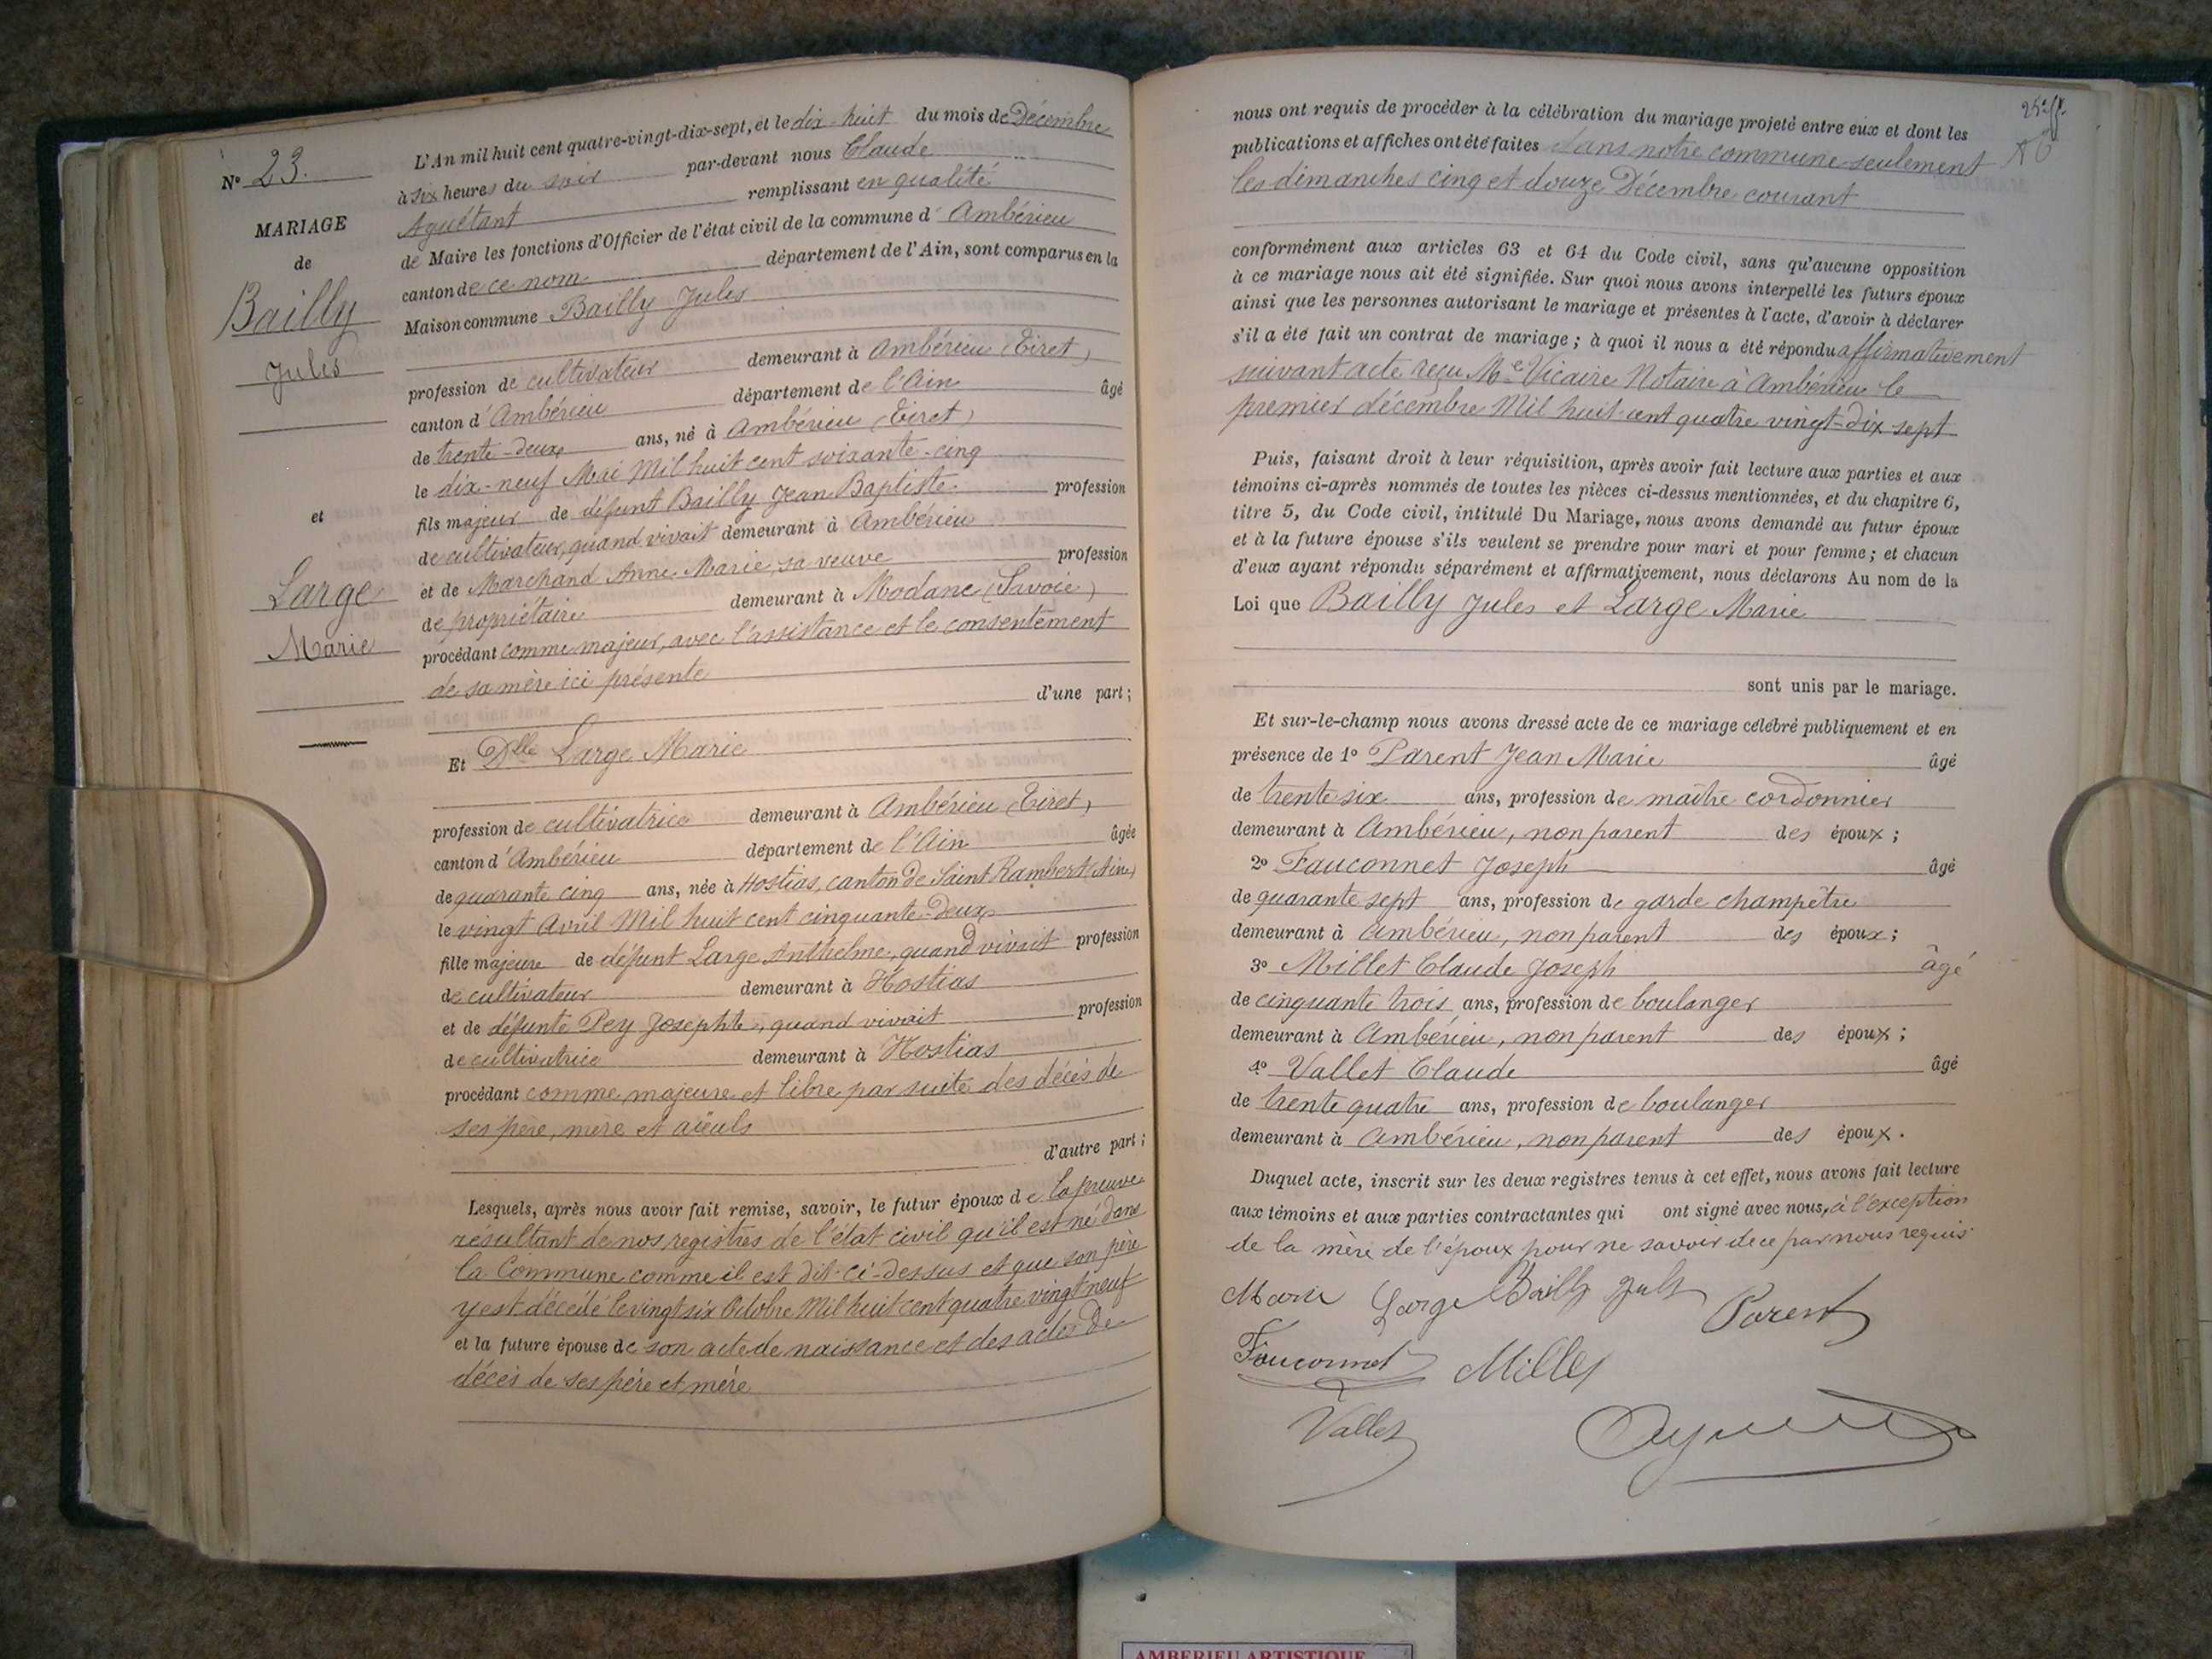 N° 23.
MARIAGE
de
Bailly
Jules
et
Large
Marie
L'An mil huit cent quatre-vingt-dix-sept, et le dix-huit du mois de Décembre
à six heures du soir par-devant nous Claude
Aguétant remplissant en qualité
de Maire les fonctions d'Officier de l'état civil de la commune d'Ambérieu
canton de ce nom département de l'Ain, sont comparus en la
Maison commune Bailly Jules
profession de cultivateur demeurant à Ambérieu (Tiret)
canton d'Ambérieu département de l'Ain âgé
de trente-deux ans, né à Ambérieu (Tiret)
le dix-neuf Mai Mil huit cent soixante-cinq
fils majeur de défunt Bailly Jean Baptiste profession
de cultivateur, quand vivait demeurant à Ambérieu
et de Marchand Anne Marie, sa veuve profession
de propriétaire demeurant à Modane (Savoie)
procédant comme majeur, avec l'assistance et le consentement
de sa mère ici présente
d'une part;
Et Dlle Large Marie
profession de cultivatrice demeurant à Ambérieu (Tiret)
canton d'Ambérieu département de l'Ain âgée
de quarante cinq ans, née à Hostias, canton de Saint Rambert (Ain)
le vingt Avril Mil huit cent cinquante-deux
fille majeure de défunt Large Anthelme, quand vivait profession
de cultivateur demeurant à Hostias
et de défunte Pey Josephte, quand vivait profession
de cultivatrice demeurant à Hostias
procédant comme majeure et libre par suite des décès de
ses père, mère et aïeuls
d'autre part;
Lesquels, après nous avoir fait remise, savoir, le futur époux de la preuve
résultant de nos registres de l'état civil qu'il est né dans
la Commune comme il est dit-ci-dessus et que son père
y est décédé le vingt six Octobre Mil huit cent quatre vingt neuf
et la future épouse de son acte de naissance et des actes de
décès de ses père et mère
nous ont requis de procéder à la célébration du mariage projeté entre eux et dont les
publications et affiches ont été faites dans notre commune seulement
les dimanches cinq et douze Décembre courant
conformément aux articles 63 et 64 du Code civil, sans qu'aucune opposition
à ce mariage nous ait été signifiée. Sur quoi nous avons interpellé les futurs époux
ainsi que les personnes autorisant le mariage et présentes à l'acte, d'avoir à déclarer
s'il a été fait un contrat de mariage; à quoi il nous a été répondu affirmativement
suivant acte reçu Me Vicaire Notaire à Ambérieu le
premier décembre Mil huit cent quatre vingt-dix sept
Puis, faisant droit à leur réquisition, après avoir fait lecture aux parties et aux
témoins ci-après nommés de toutes les pièces ci-dessus mentionnées, et du chapitre 6,
titre 5, du Code civil, intitulé Du Mariage, nous avons demandé au futur époux
et à la future épouse s'ils veulent se prendre pour mari et pour femme; et chacun
d'eux ayant répondu séparément et affirmativement, nous déclarons Au nom de la
Loi que Bailly Jules et Large Marie
sont unis par le mariage.
Et sur-le-champ nous avons dressé acte de ce mariage célébré publiquement et en
présence de 1° Parent Jean Marie âgé
de trente six ans, profession de maître cordonnier
demeurant à Ambérieu, non parent des époux;
2° Fauconnet Joseph âgé
de quarante sept ans, profession de garde champêtre
demeurant à Ambérieu, non parent des époux;
3° Millet Claude Joseph âgé
de cinquante trois ans, profession de boulanger
demeurant à Ambérieu, non parent des époux;
4° Vallet Claude âgé
de trente quatre ans, profession de boulanger
demeurant à Ambérieu, non parent des époux.
Duquel acte, inscrit sur les deux registres tenus à cet effet, nous avons fait lecture
aux témoins et aux parties contractantes qui ont signé avec nous, à l'exception
de la mère de l'époux pour ne savoir de ce par nous requis
Marie Large Bailly Jules Parent
Fauconnet Millet
Vallet
AMBERIEU ARTISTIQUE